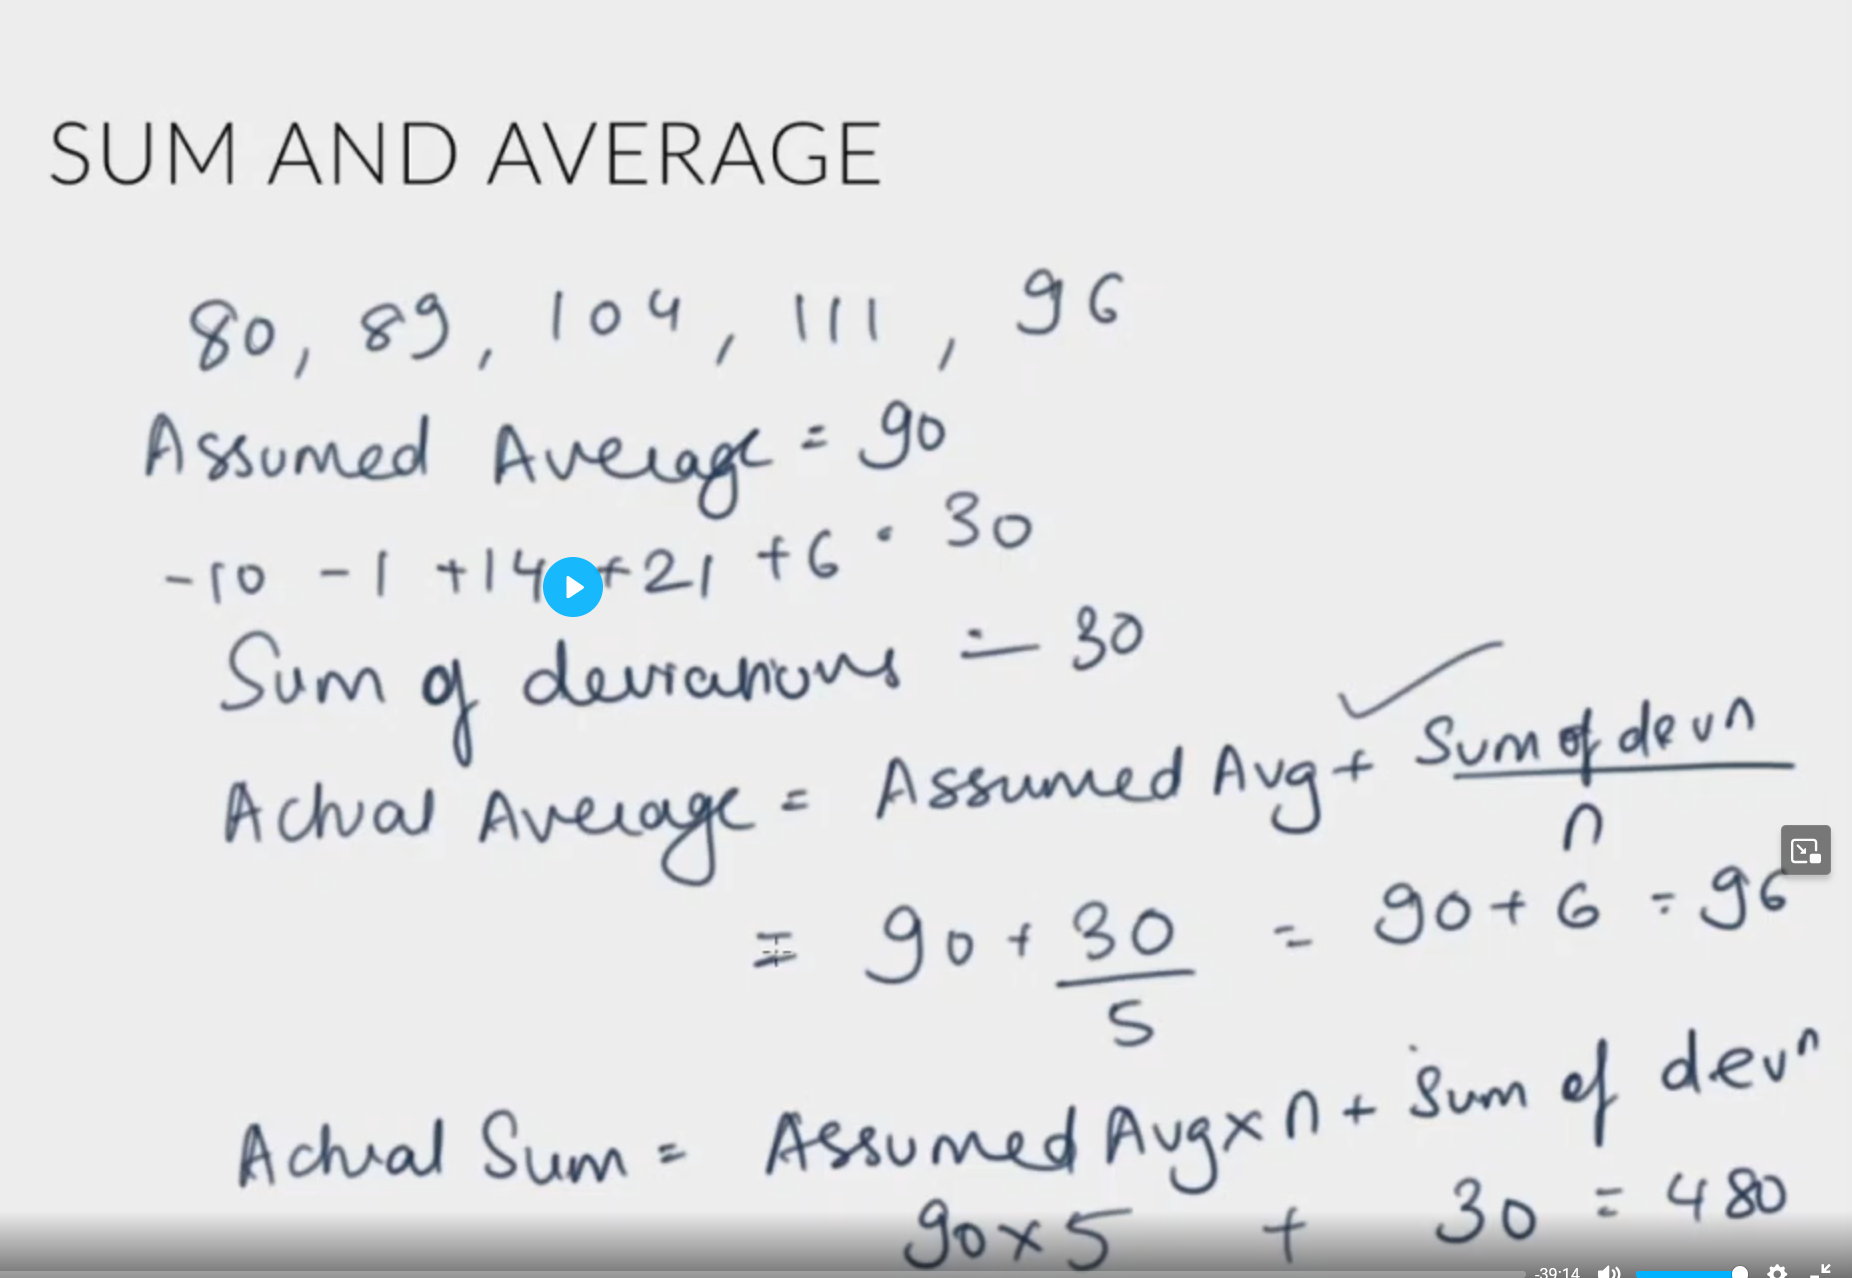 SUM AND AVERAGE
80, 89, 104, 111, 96
Assumed Average = 90
-10 -1 +14 +21 +6 = 30
Sum of deviations = 30
Actual Average = Assumed Avg + Sum of devn / n
= 90 + 30 / 5 = 90 + 6 = 96
Actual Sum = Assumed Avg x n + Sum of devn
90 x 5 + 30 = 480
-39:14